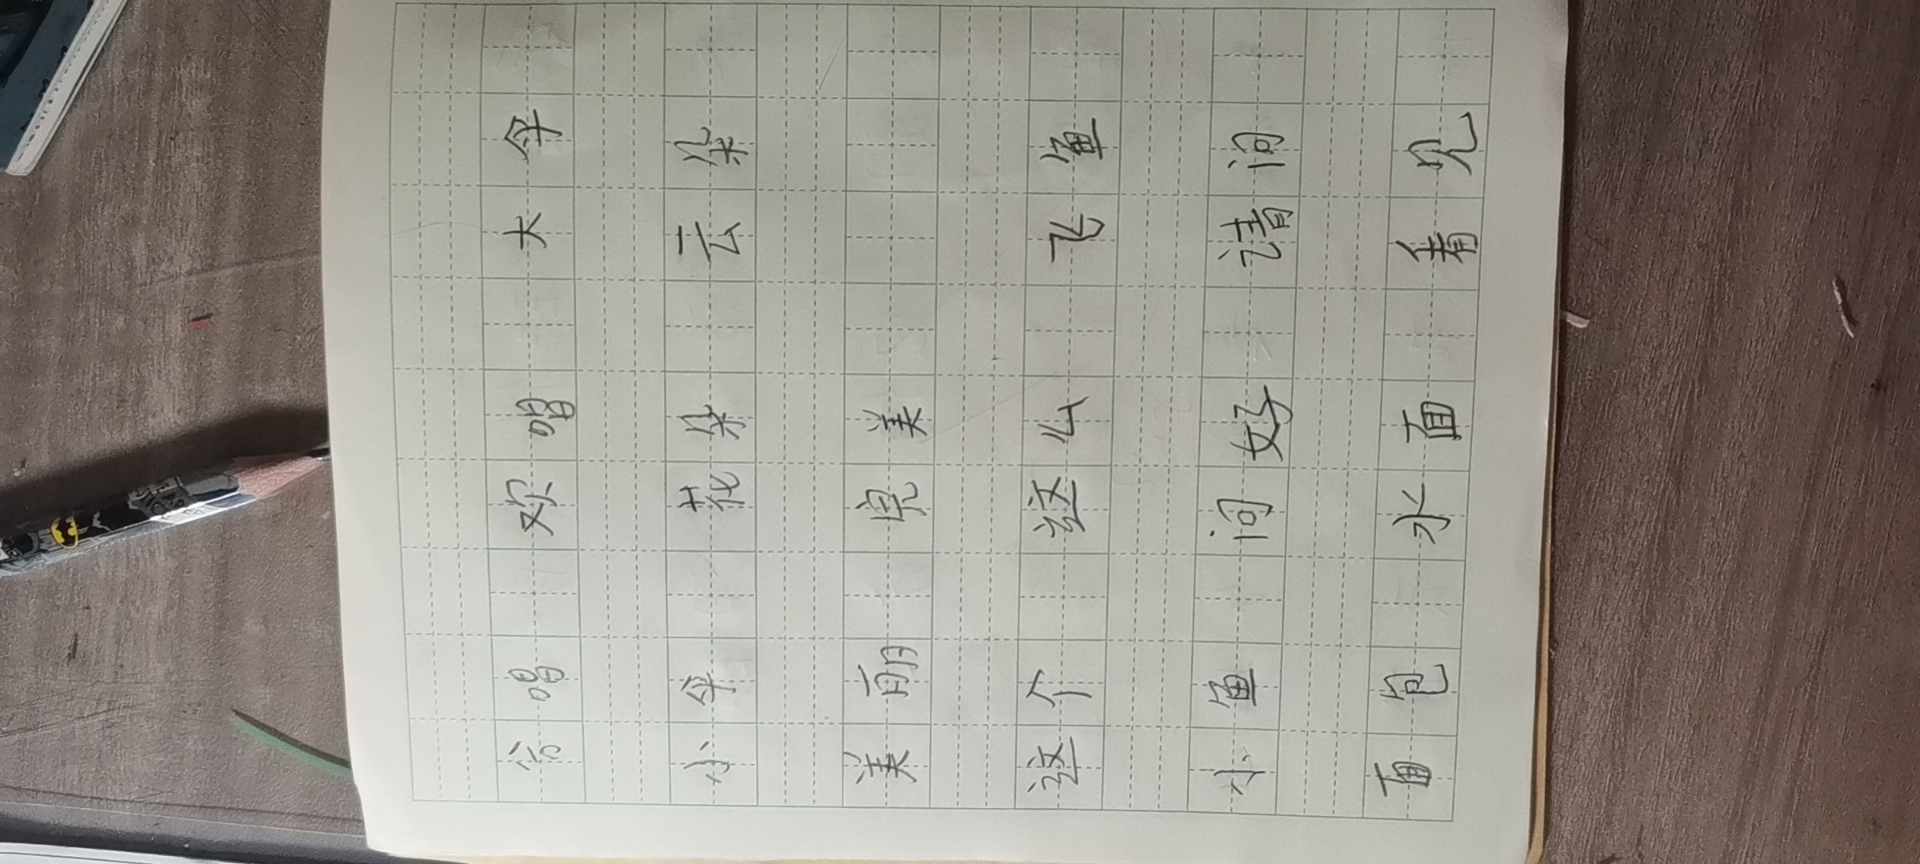 合唱 欢唱 大伞
小伞 花朵 云朵
美丽 完美
这个 这么 飞鱼
小鱼 问好 请问
面包 水面 看见